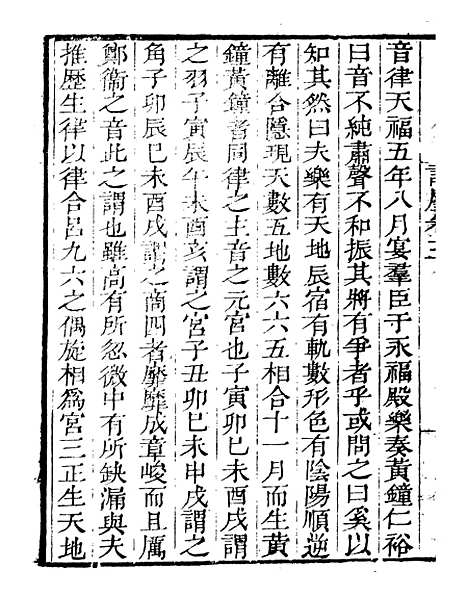 音律天福五年八月宴羣臣于永福殿樂奏黃鐘仁裕
曰音不純肅聲不和振其將有爭者乎或問之曰奚以
知其然曰夫樂有天地辰宿有軌數形色有陰陽順逆
有離合隱現天數五地數六六五相合十一月而生黃
鐘黃鐘者同律之主音之元宮也子寅卯巳未酉戌謂
之羽子寅辰午未酉亥謂之宮子丑卯巳未申戌謂之
角子卯辰巳未酉戌謂之商四者靡靡成章峻而且厲
鄭衞之音此之謂也雖高有所忽微中有所缺漏與夫
推歷生律以律合呂九六之偶旋相爲宮三正生天地